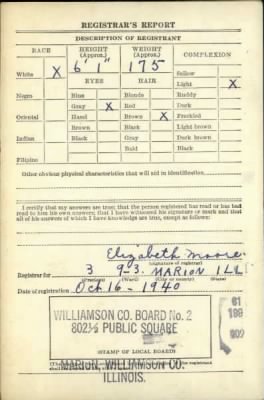 REGISTRAR'S REPORT
DESCRIPTION OF REGISTRANT
RACE HEIGHT (Approx.) WEIGHT (Approx.) COMPLEXION
White X 6' 1" 175 Sallow
EYES HAIR Light X
Negro Blue Blonde Ruddy
Gray X Red Dark
Oriental Hazel Brown X Freckled
Brown Black Light brown
Indian Black Gray Dark brown
Bald Black
Filipino
Other obvious physical characteristics that will aid in identification
I certify that my answers are true; that the person registered has read or has had
read to him his own answers; that I have witnessed his signature or mark and that
all of his answers of which I have knowledge are true, except as follows:
Elizabeth Moore
(Signature of registrar)
Registrar for 3 9-3 MARION ILL
(Precinct) (Ward) (City or county) (State)
Date of registration Oct 16 - 1940
WILLIAMSON CO. BOARD No. 2
802½ PUBLIC SQUARE
(STAMP OF LOCAL BOARD)
MARION, WILLIAMSON CO.
ILLINOIS.
61
199
002